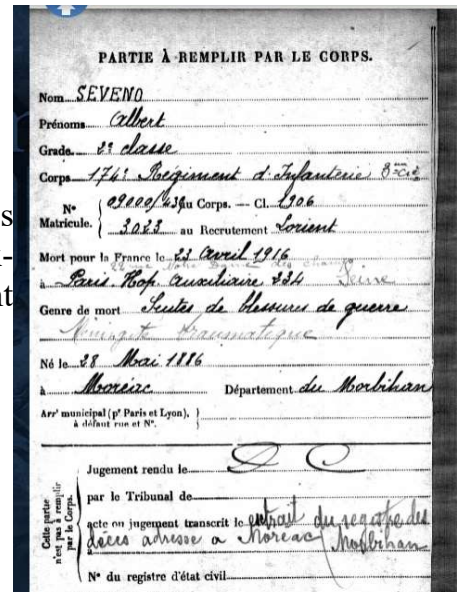 PARTIE À REMPLIR PAR LE CORPS.
Nom SEVENO
Prénoms Albert
Grade 2e classe
Corps 174e Régiment d'Infanterie 8e Cie
N° Matricule. { 09000/ au Corps. — Cl. 1906
3023 au Recrutement Lorient
Mort pour la France le 23 Avril 1916
22 rue Notre Dame des Champs
à Paris Hop. Auxiliaire 234 Seine
Genre de mort Suites de blessures de guerre
Méningite traumatique
Né le 28 Mai 1886
à Moréac Département du Morbihan
Arrt municipal (pr Paris et Lyon), }
à défaut rue et N°.
Cette partie n'est pas à remplir par le Corps.
Jugement rendu le D C
par le Tribunal de
acte ou jugement transcrit le extrait du registre des
décès adressé a Moréac Morbihan
N° du registre d'état civil
s
-
nt